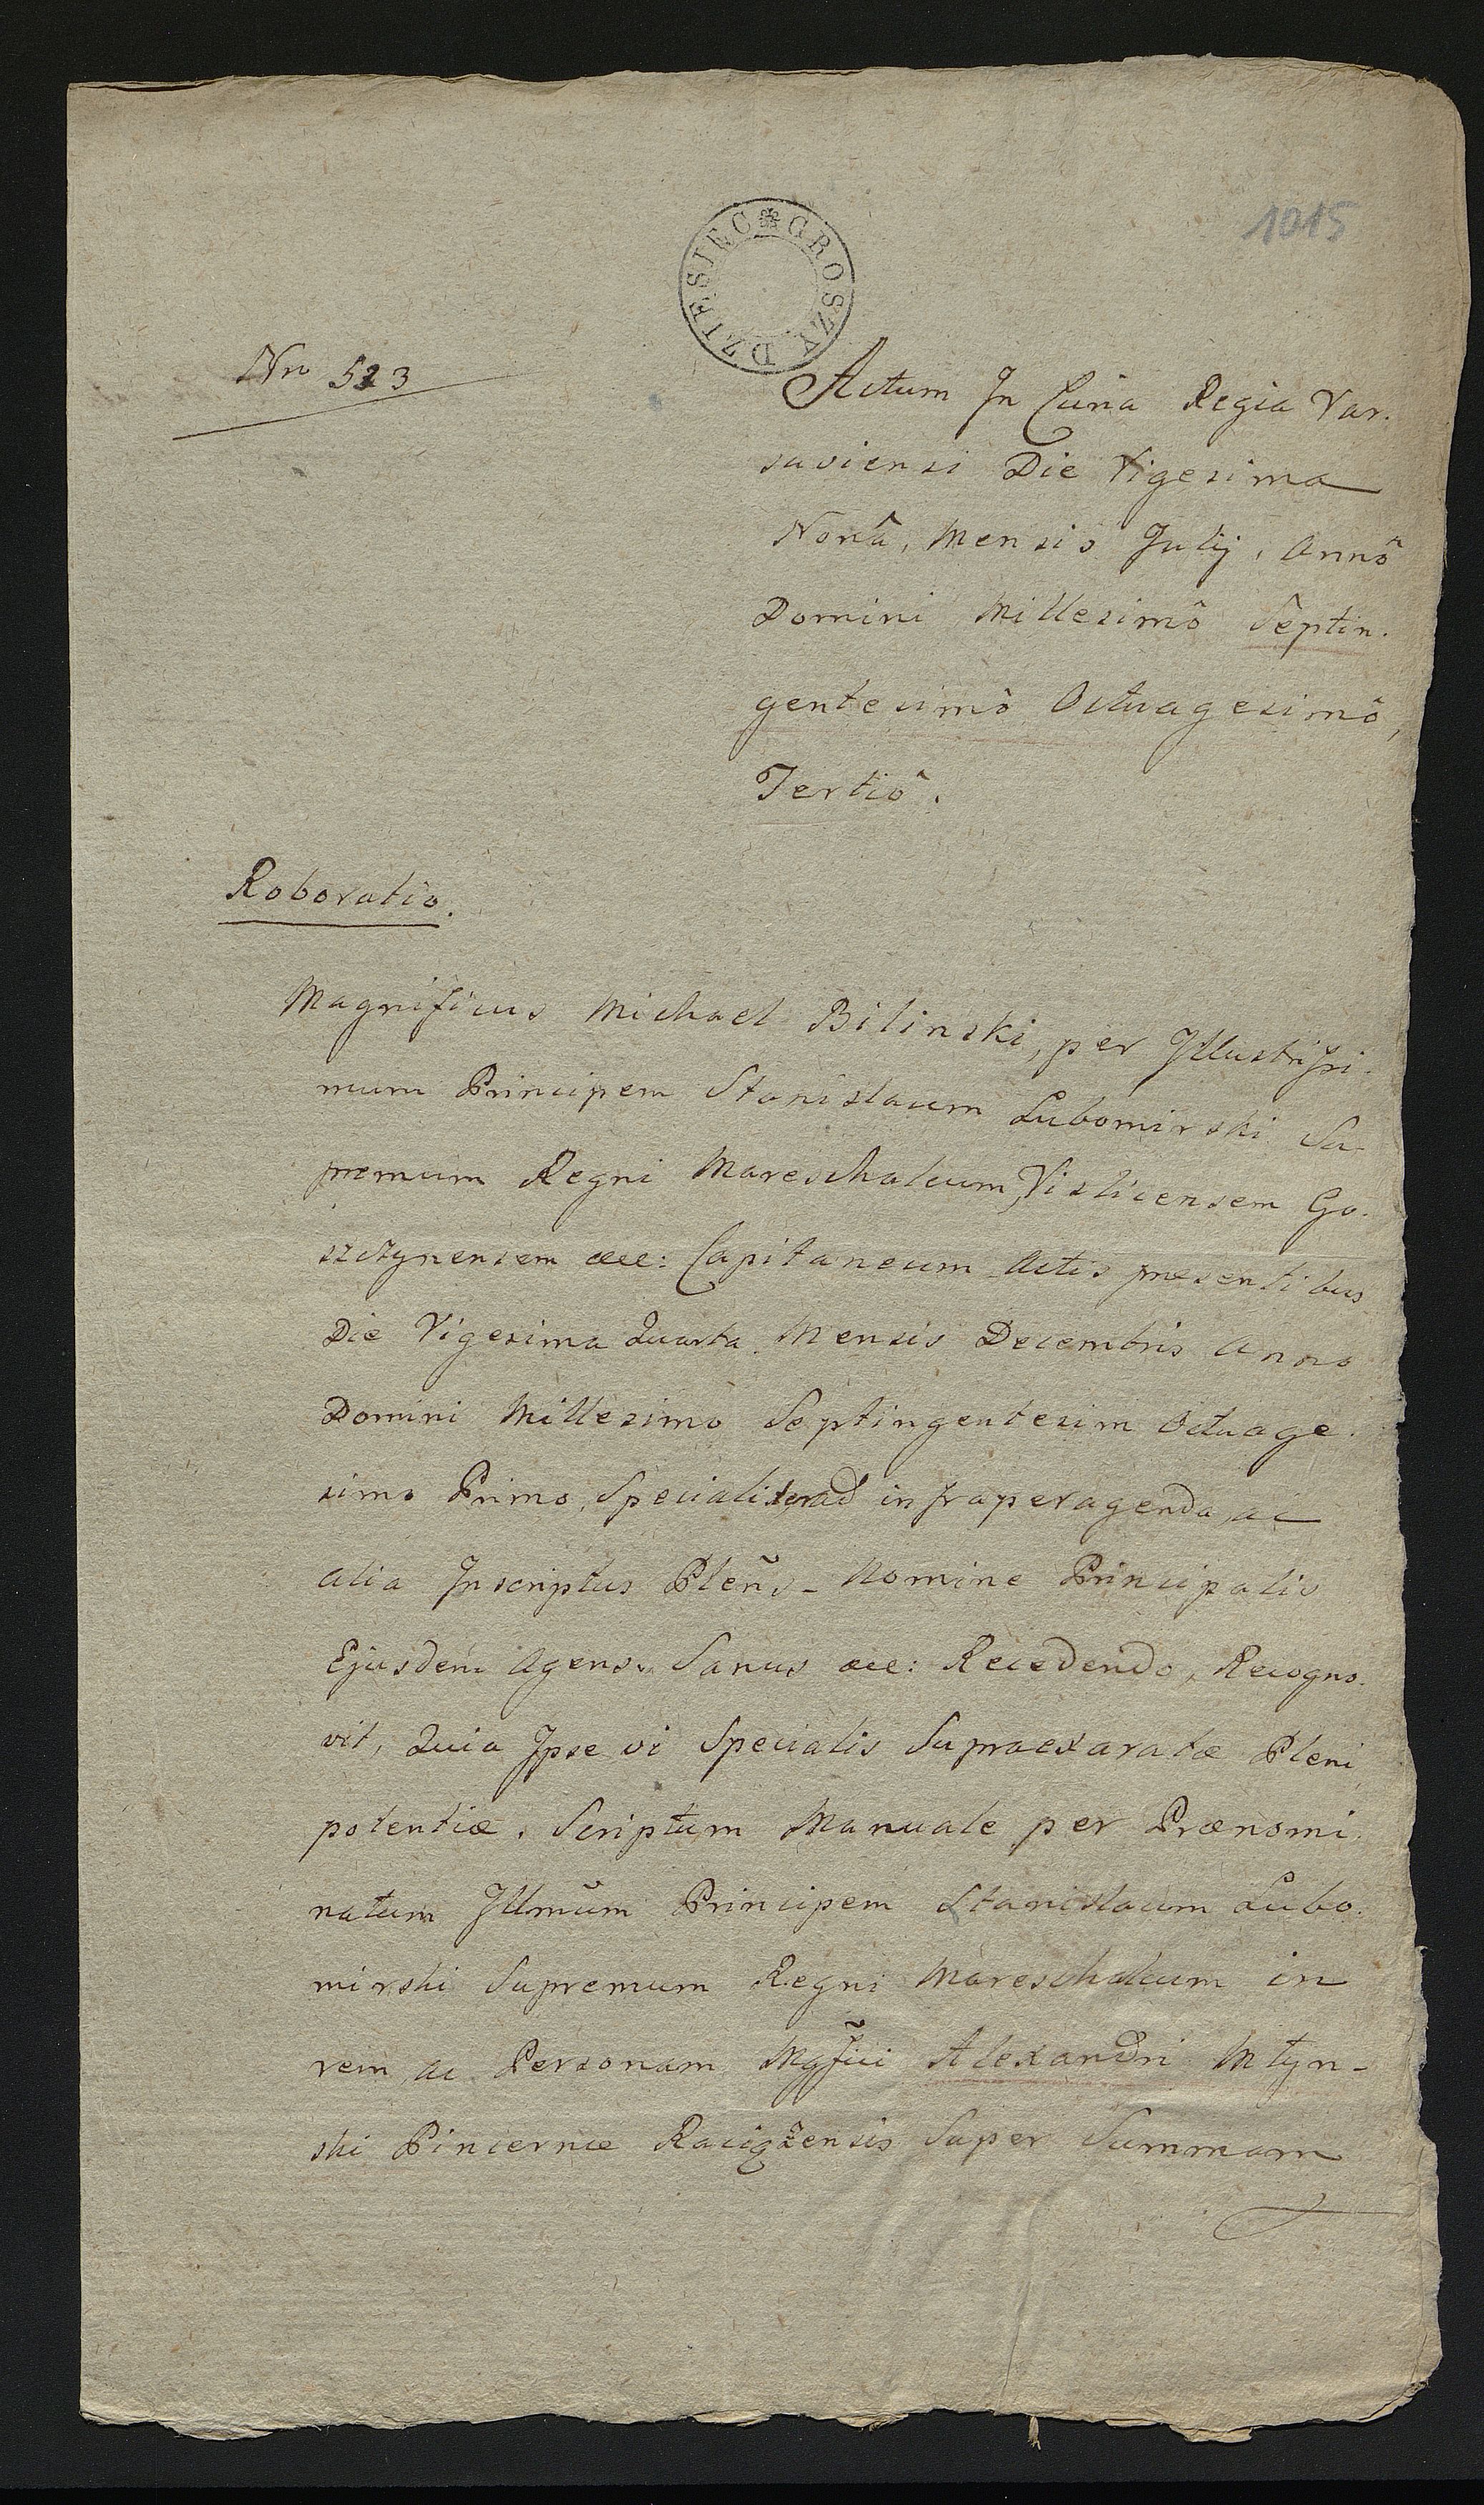 1015
DZIESIEC GROSZY
Nro 523
Actum In Curia Regia Var.
saviensi Die Vigesima
Nonâ, Mensis Julij, Annô
Domini Millesimô Septin.
gentesimô Octuagesimô,
Tertiô.
Roboratio.
Magnificus Michael Bilinski, per Illustrissi.
mum Principem Stanislaum Lubomirski Su
premum Regni Mareschalcum, Vislicensem Go.
szczynensem etc: Capitaneum Actis praesentibus
Die Vigesima Quarta Mensis Decembris Anno
Domini Millesimo Septingentesim Octuage.
simo Primo, Specialiter ad infraperagenda, ac
alia Inscriptus Pleñs - Nomine Principalis
Ejusdem Agens. Sanus etc: Recedendo, Recogno.
vit, Quia Ipse vi Specialis Supraexaratæ Pleni
potentiæ. Scriptum Manuale per Prænomi.
natum Illmũm Principem Stanislaum Lubo.
mirski Supremum Regni Mareschalcum in
rem ac Personam Mgf̃ici Alexandri Młyn-
ski Pincernæ Raciążensis Super Summam